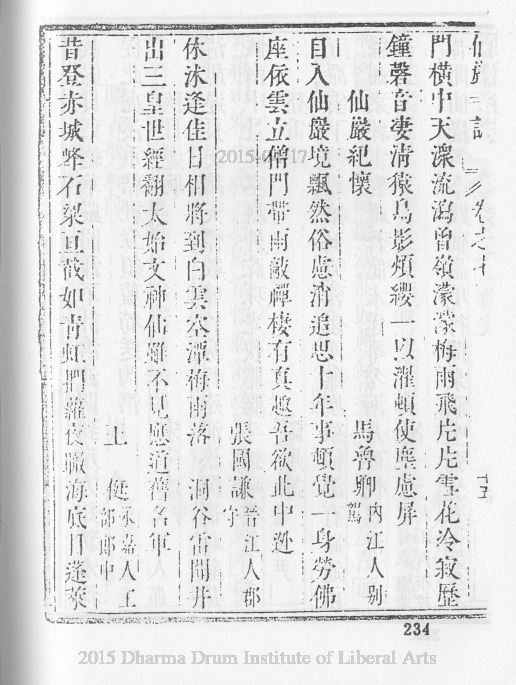 仙巖志 卷之七 十五
門橫中天深流瀉曾嶺濛濛梅雨飛片片雪花冷寂歷
鐘磬音淒淸猿鳥影煩纓一以濯頓使塵慮屏
仙巖紀懷 馬魯卿內江人別駕
目入仙巖境飄然俗慮消追思十年事頓覺一身勞佛
座依雲立僧門帶雨敲禪棲有真趣吾欲此中逃
張國謙晉江人郡守
休沐逢佳日相將到白雲本潭梅雨落洞谷雷聞井
出三皇世經翻太始文神仙雖不見應道舊名軍
王健永嘉人工部郎中
昔登赤城峰石梁亘截如靑虹捫蘿夜瞰海底日蓬萊
2015-04-17
234
2015 Dharma Drum Institute of Liberal Arts